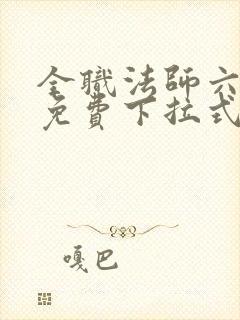 全職法師六
免費下拉式
嘎巴